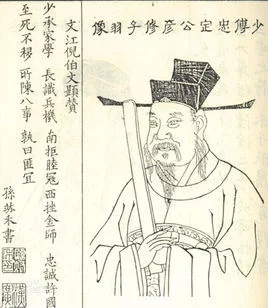 少傅忠定公彥修子羽像
文江倪伯文題贊
少承家學 長識兵機 南拒睦冦 西挫金師 忠誠許國
至死不移 所陳八事 孰曰匪宜
孫 禾書